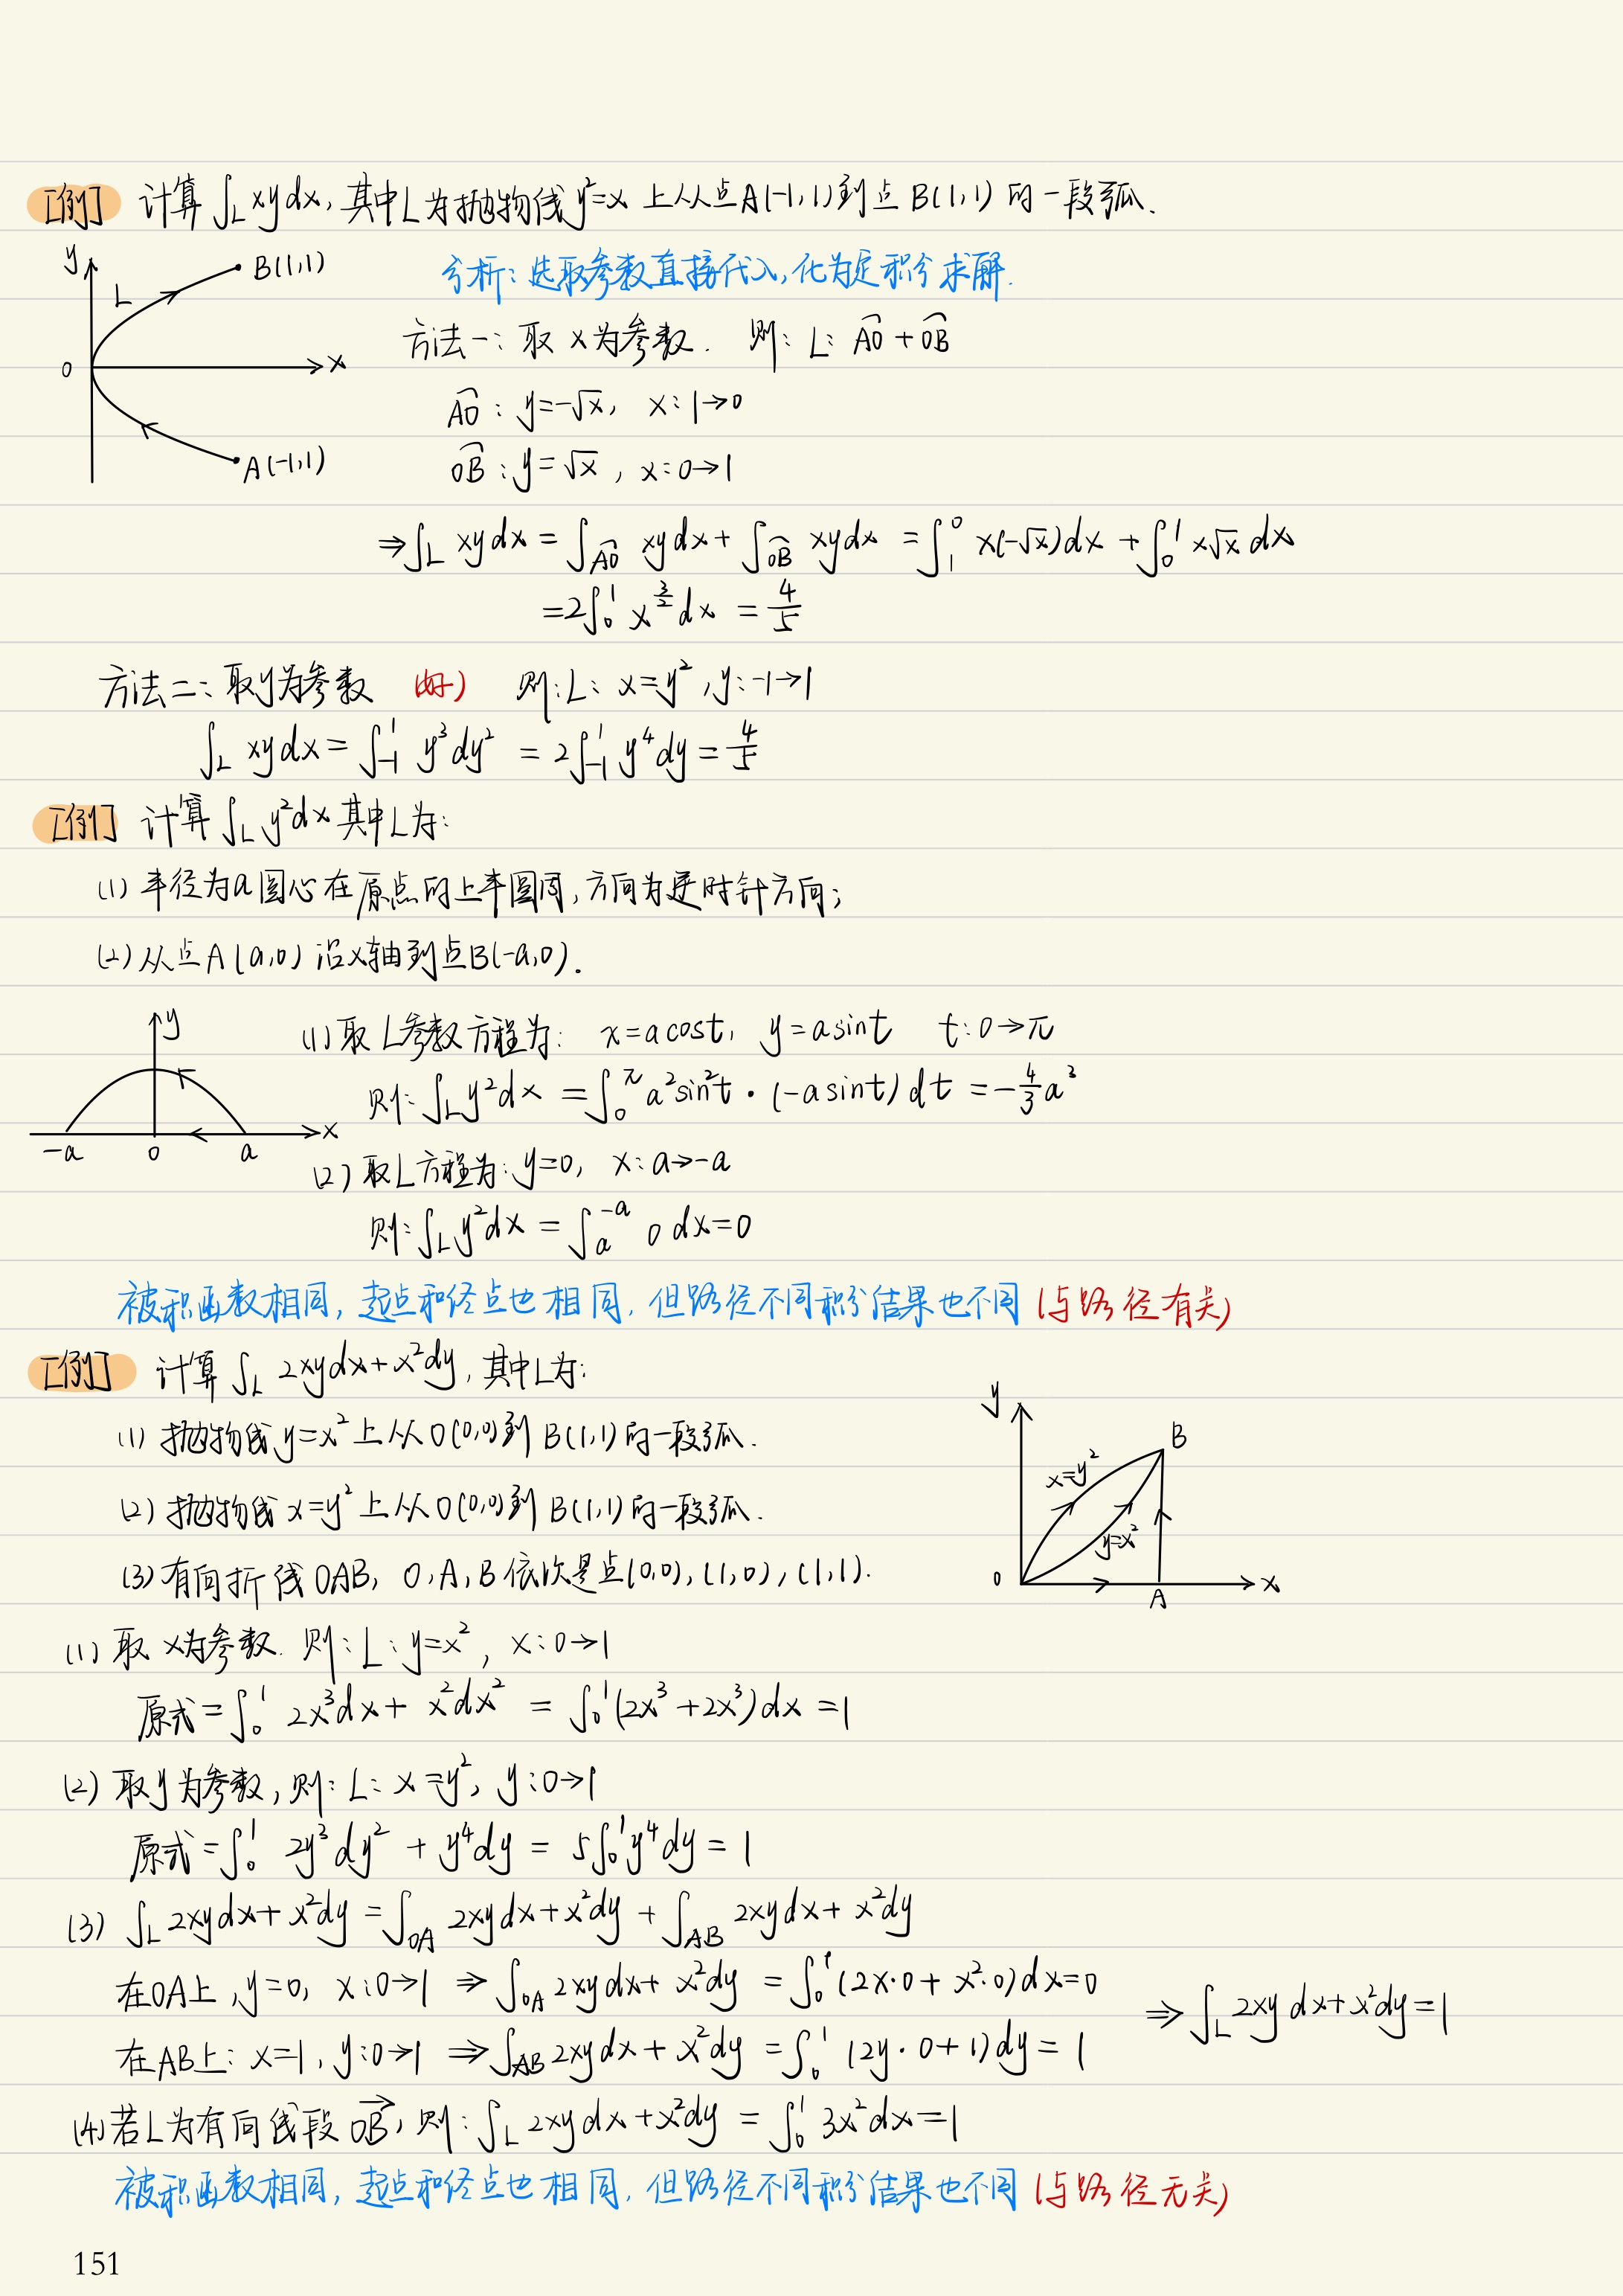 [例] 计算∫_L xydx,其中L为抛物线y²=x 上从点A(-1,1)到点B(1,1)的一段弧.
y
B(1,1)
L
0
x
A(-1,1)
分析:选取参数直接代入,化为定积分求解.
方法一:取x为参数. 则:L:A͡O+O͡B
A͡O:y=-√x, x:1→0
O͡B:y=√x, x:0→1
⇒∫_L xydx=∫_A͡O xydx+∫_O͡B xydx=∫₁⁰ x(-√x)dx+∫₀¹ x√x dx
=2∫₀¹ x^(3/2) dx=4/5
方法二:取y为参数 (好) 则:L:x=y²,y:-1→1
∫_L xydx=∫₋₁¹ y³dy²=2∫₋₁¹ y⁴dy=4/5
[例] 计算∫_L y²dx其中L为:
(1)半径为a圆心在原点的上半圆周,方向为逆时针方向;
(2)从点A(a,0)沿x轴到点B(-a,0).
y
x
-a 0 a
(1)取L参数方程为: x=acost, y=asint t:0→π
则:∫_L y²dx=∫₀^π a²sin²t·(-asint)dt=-4/3 a³
(2)取L方程为:y=0, x:a→-a
则:∫_L y²dx=∫_a^(-a) 0 dx=0
被积函数相同,起点和终点也相同,但路径不同积分结果也不同(与路径有关)
[例] 计算∫_L 2xydx+x²dy,其中L为:
(1)抛物线y=x²上从O(0,0)到B(1,1)的一段弧.
(2)抛物线x=y²上从O(0,0)到B(1,1)的一段弧.
(3)有向折线OAB, O,A,B依次是点(0,0),(1,0),(1,1).
y
B
x=y²
y=x²
0
A
x
(1)取x为参数.则:L:y=x², x:0→1
原式=∫₀¹ 2x³dx+x²dx²=∫₀¹(2x³+2x³)dx=1
(2)取y为参数,则:L:x=y², y:0→1
原式=∫₀¹ 2y³dy²+y⁴dy=5∫₀¹y⁴dy=1
(3) ∫_L 2xydx+x²dy=∫_OA 2xydx+x²dy+∫_AB 2xydx+x²dy
在OA上,y=0, x:0→1 ⇒∫_OA 2xydx+x²dy=∫₀¹(2x·0+x²·0)dx=0
在AB上:x=1,y:0→1 ⇒∫_AB 2xydx+x²dy=∫₀¹(2y·0+1)dy=1
⇒∫_L 2xydx+x²dy=1
(4)若L为有向线段O⃗B⃗,则:∫_L 2xydx+x²dy=∫₀¹ 3x²dx=1
被积函数相同,起点和终点也相同,但路径不同积分结果也不同(与路径无关)
151